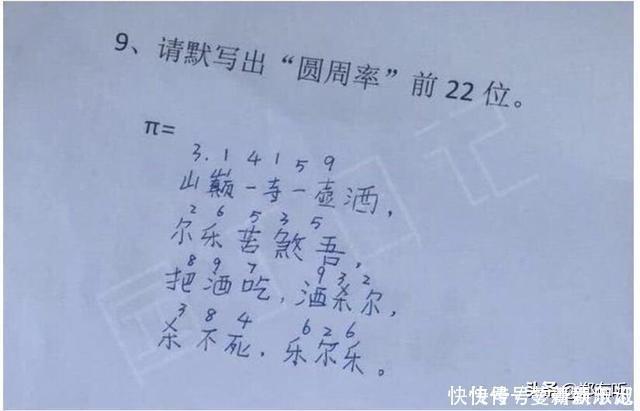 9、请默写出“圆周率”前22位。
π=
3.1 4 1 5 9
山巅一寺一壶酒，
2 6 5 3 5
尔乐苦煞吾，
8 9 7 9 3 2
把酒吃，酒杀尔，
3 8 4 6 2 6
杀不死，乐尔乐。